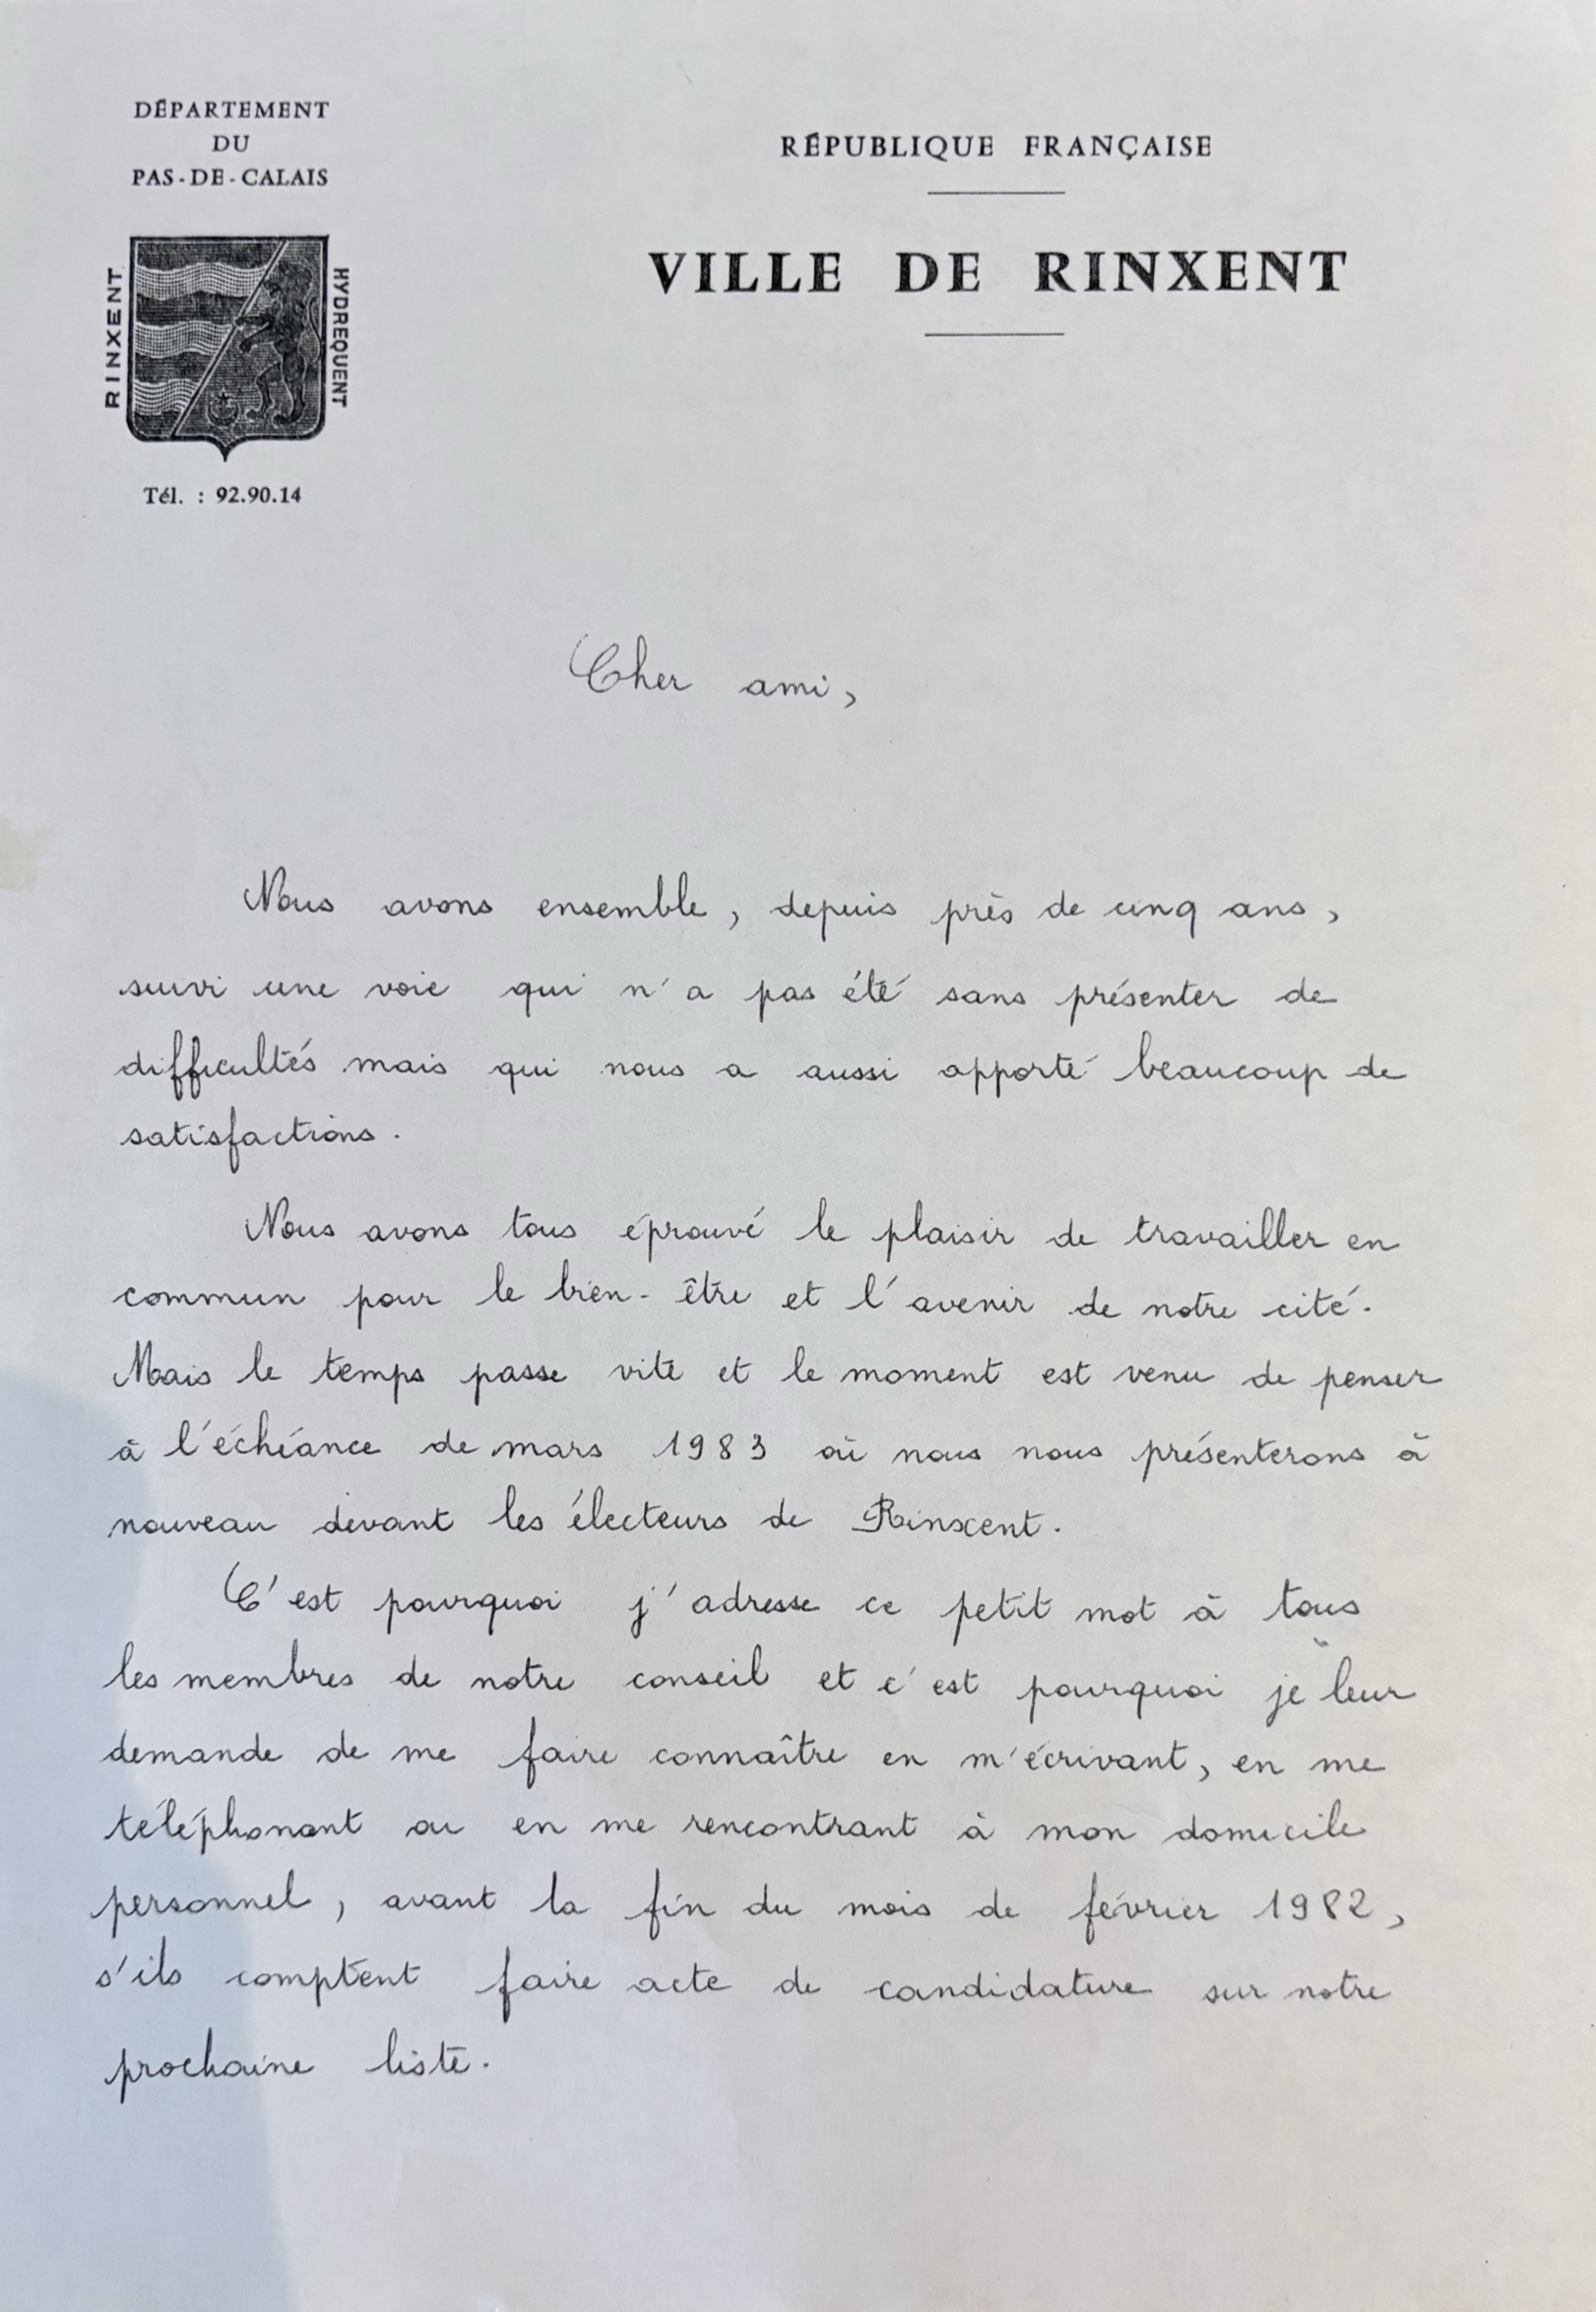 DÉPARTEMENT
DU
PAS-DE-CALAIS
RINXENT
HYDREQUENT
Tél. : 92.90.14
RÉPUBLIQUE FRANÇAISE
VILLE DE RINXENT
Cher ami,
Nous avons ensemble, depuis près de cinq ans,
suivi une voie qui n'a pas été sans présenter de
difficultés mais qui nous a aussi apporté beaucoup de
satisfactions.
Nous avons tous éprouvé le plaisir de travailler en
commun pour le bien-être et l'avenir de notre cité.
Mais le temps passe vite et le moment est venu de penser
à l'échéance de mars 1983 où nous nous présenterons à
nouveau devant les électeurs de Rinxent.
C'est pourquoi j'adresse ce petit mot à tous
les membres de notre conseil et c'est pourquoi je leur
demande de me faire connaître en m'écrivant, en me
téléphonant ou en me rencontrant à mon domicile
personnel, avant la fin du mois de février 1982,
s'ils comptent faire acte de candidature sur notre
prochaine liste.